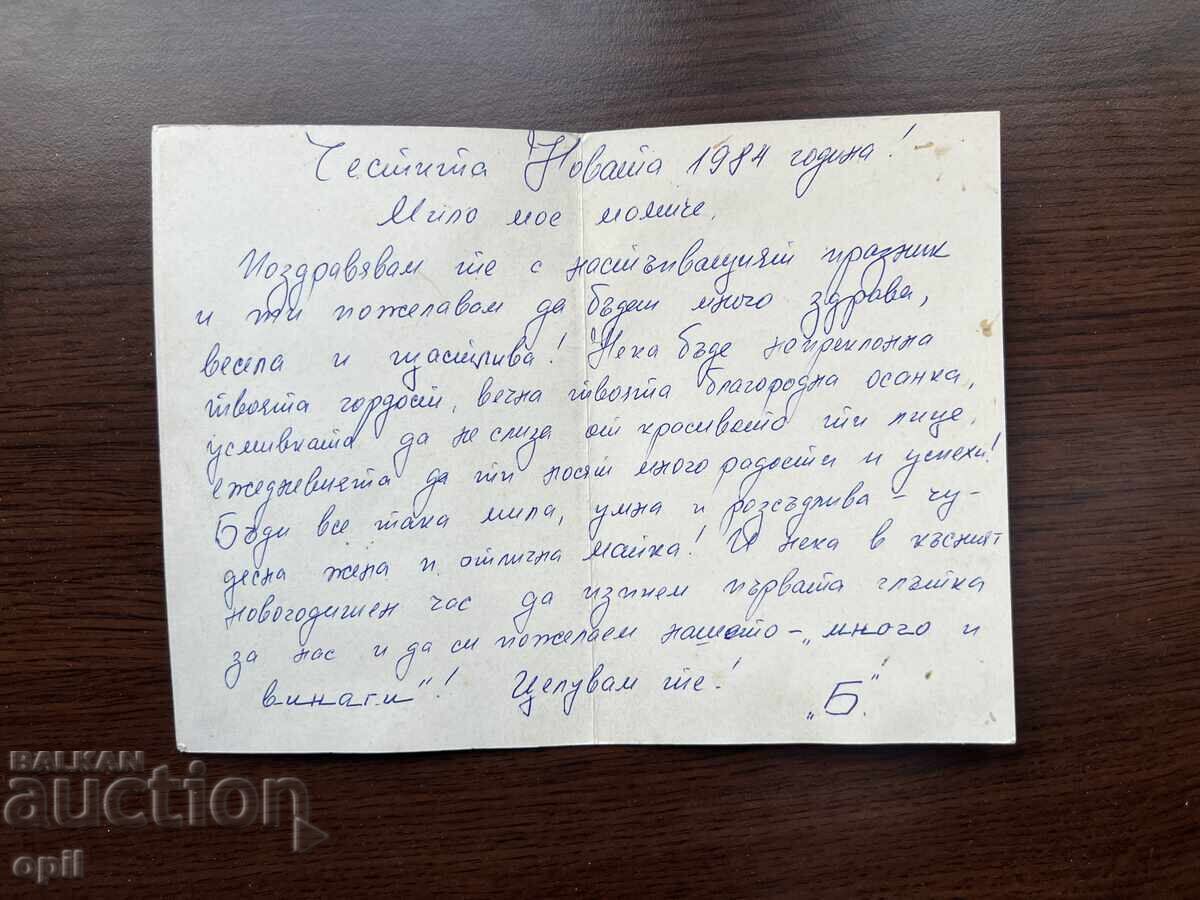 Честита Новата 1984 година!
Мило мое момиче,
Поздравявам те с настъпващият празник
и ти пожелавам да бъдеш много здрава,
весела и щастлива! Нека бъде непреклонна
твоята гордост, вечна твоята благородна осанка,
усмивката да не слиза от красивото ти лице,
ежедневията да ти носят много радости и успехи!
Бъди все така мила, умна и розсъдлива – чу-
десна жена и отлична майка! И нека в късният
новогодишен час да изпием първата глътка
за нас и да си пожелаем нашето – „много и
винаги"! Целувам те!
„Б."
BALKAN
auction
opil